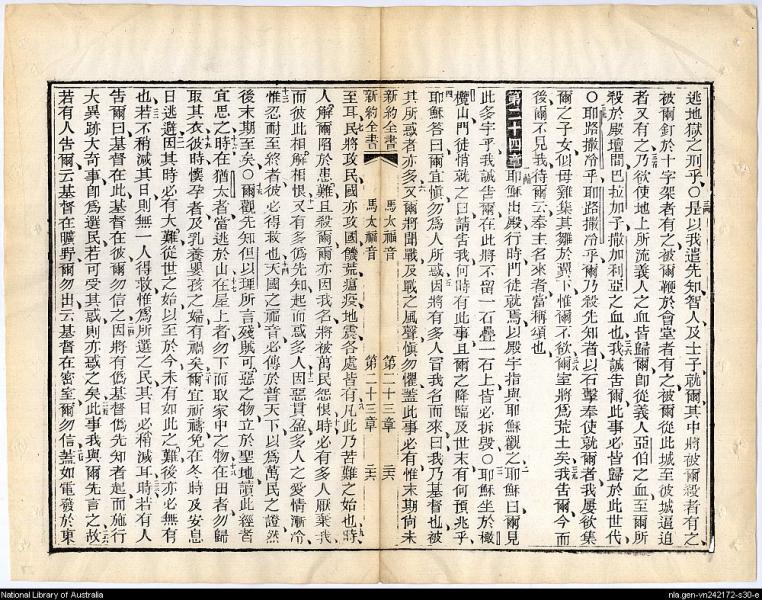 逃地獄之刑乎○是以我遣先知智人及士子就爾其中將被爾殺者有之
被爾釘於十字架者有之被爾鞭於會堂者有之被爾從此城至彼城逼迫
者又有之乃欲使地上所流義人之血皆歸爾卽從義人亞伯之血至爾所
殺於殿壇間巴拉加子撒加利亞之血也我誠告爾此事必皆歸於此世代
○耶路撒冷乎耶路撒冷乎爾乃殺先知者以石擊奉使就爾者我屢欲集
爾之子女似母雞集其雛於翼下惟爾不欲爾室將爲荒土矣我告爾今而
後爾不見我待爾云奉主名來者當稱頌也
第二十四章耶穌出殿行時門徒就焉以殿宇指與耶穌觀之耶穌曰爾見
此多宇乎我誠告爾在此將不留一石疊一石上皆必拆毀○耶穌坐於橄
欖山門徒悄就之曰請告我何時有此事且爾之降臨及世末有何預兆乎
耶穌答曰爾宜愼勿爲人所惑因將有多人冒我名而來曰我乃基督也被
其所惑者亦多又爾將聞戰及戰之風聲愼勿懼蓋此事必有惟末期尚未
新約全書 馬太福音 第二十三章
新約全書 馬太福音 第二十三章
至耳民將攻民國亦攻國饑荒瘟疫地震各處皆有凡此乃苦難之始也時
人解爾陷於患難且殺爾爾亦因我名將被萬民怨恨時必有多人厭棄我
而彼此相解相恨又有多僞先知起而惑多人因惡貫盈多人之愛情漸冷
惟忍耐至終者彼必得救也天國之福音必傳於普天下以爲萬民之證然
後末期至矣○爾觀先知但以理所言殘賊可惡之物立於聖地讀此經者
宜思之時在猶太者當逃於山在屋上者勿下而取家中之物在田者勿歸
取其衣彼時懷孕者及乳養嬰孩之婦有禍矣爾宜祈禱免在冬時及安息
日逃避因其時必有大難從世之始以至於今未有如此之難後亦必無有
也若不稍減其日則無一人得救惟爲所選之民其日必稍減耳時若有人
告爾曰基督在此基督在彼爾勿信之因將有僞基督僞先知者起而施行
大異跡大奇事卽爲選民若可受其惑則亦惑之矣此事我與爾先言之故
若有人告爾云基督在曠野爾勿出云基督在密室爾勿信蓋如電發於東
National Library of Australia
nla.gen-vn242172-s30-e